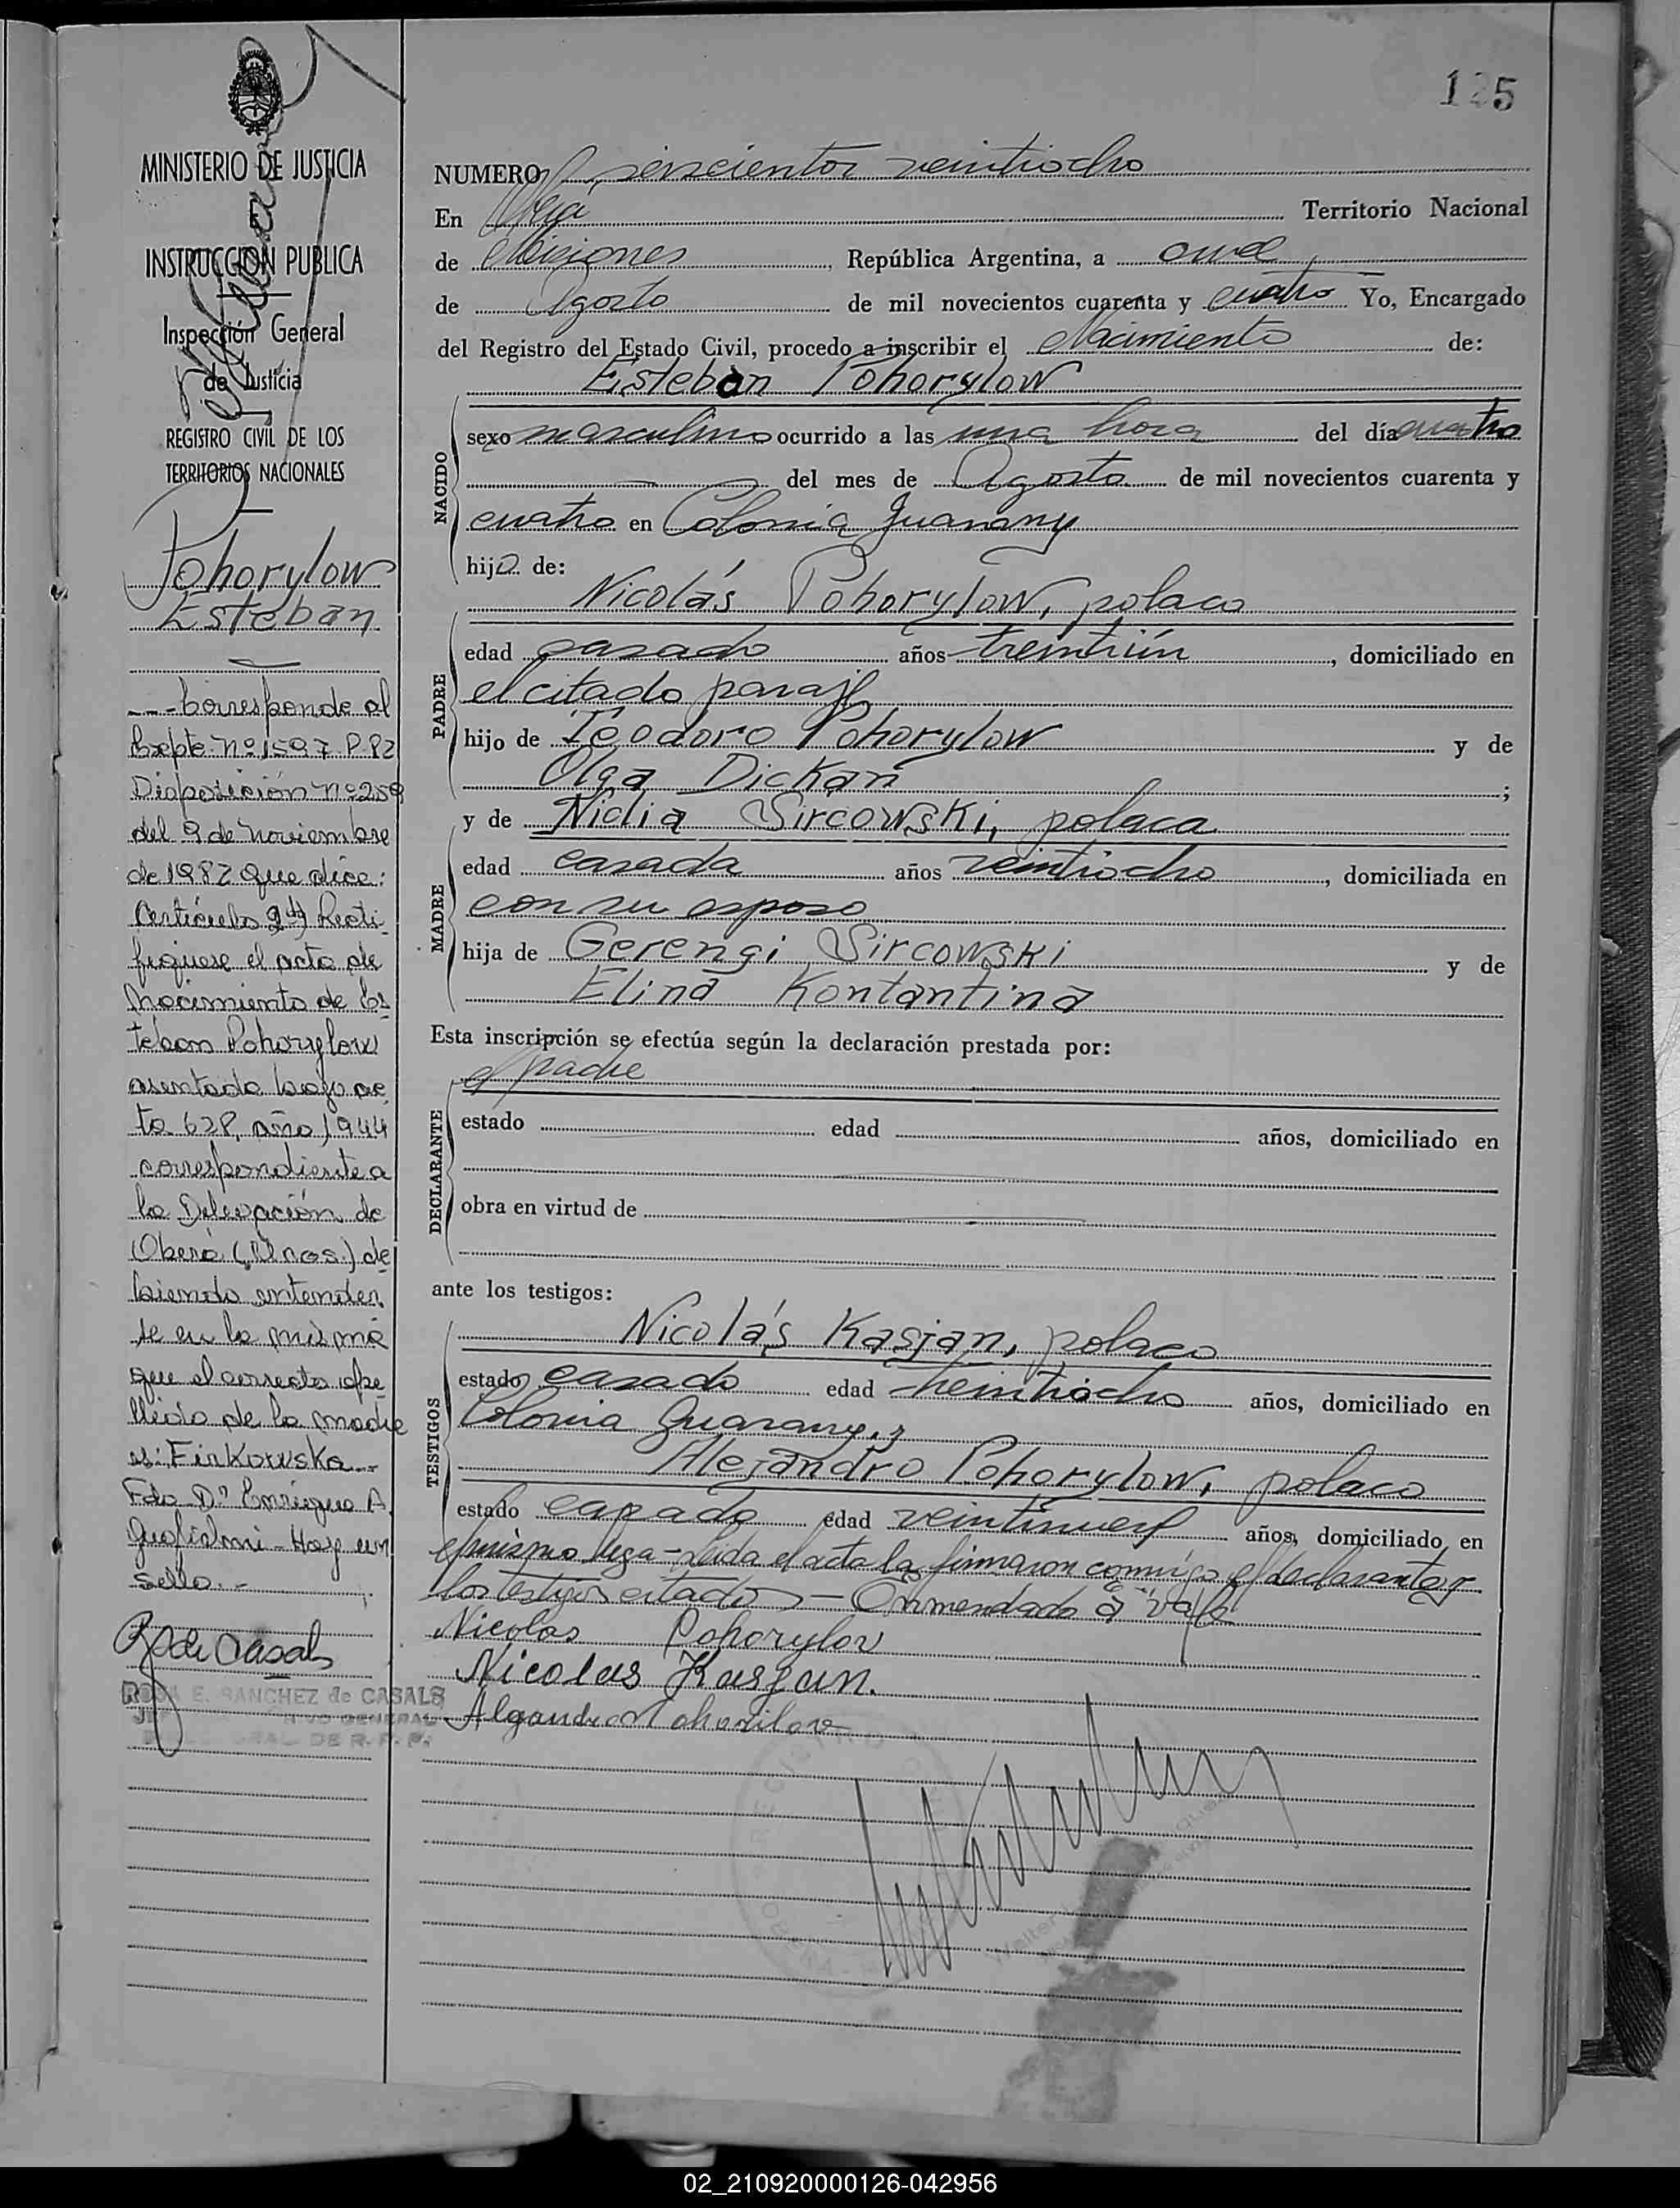 125
MINISTERIO DE JUSTICIA
E
INSTRUCCION PUBLICA
Inspección General
de Justicia
REGISTRO CIVIL DE LOS
TERRITORIOS NACIONALES
Pohorylow
Esteban
---Corresponde al
Expte. Nº 1597 P 82
Disposición Nº 259
del 9 de Noviembre
de 1982 que dice:
Artículo 1º) Recti-
fíquese el acta de
Nacimiento de Es-
teban Pohorylow
asentada bajo ac-
ta 628, año 1944
correspondiente a
la Delegación de
Oberá (Mnes.) de-
biendo entender-
se en la misma
que el correcto ape-
llido de la madre
es: Firkowska.--
Fdo Dº Enrique A.
Guglielmi - Hay un
sello.-
R S de Casals
ROSA E. SANCHEZ de CASALS
GENERAL
DE R. P. P.
NUMERO seiscientos veintiocho
En Oberá Territorio Nacional
de Misiones, República Argentina, a once
de Agosto de mil novecientos cuarenta y cuatro Yo, Encargado
del Registro del Estado Civil, procedo a inscribir el Nacimiento de:
Esteban Pohorylow
NACIDO
sexo masculino ocurrido a las una hora del día cuatro
del mes de Agosto de mil novecientos cuarenta y
cuatro en Colonia Guarany
hijo de:
Nicolás Pohorylow, polaco
PADRE
edad casado años treintiún, domiciliado en
el citado paraje
hijo de Teodoro Pohorylow y de
Olga Dickan;
y de Nidia Sircowski, polaca
MADRE
edad casada años veintiocho, domiciliada en
con su esposo
hija de Gerengi Sircowski y de
Elina Kontantina
Esta inscripción se efectúa según la declaración prestada por:
el padre
DECLARANTE
estado edad años, domiciliado en
obra en virtud de
ante los testigos:
Nicolás Kasjan, polaco
TESTIGOS
estado casado edad treintiocho años, domiciliado en
Colonia Guarany, y
Alejandro Pohorylow, polaco
estado casado edad veintinueve años, domiciliado en
el mismo lugar - leida el acta la firmaron conmigo el declarante y
los testigos citados - Enmendado "a" vale
Nicolas Pohorylow
Nicolas Kasjan.
Algandro Pohorilow
02_210920000126-042956